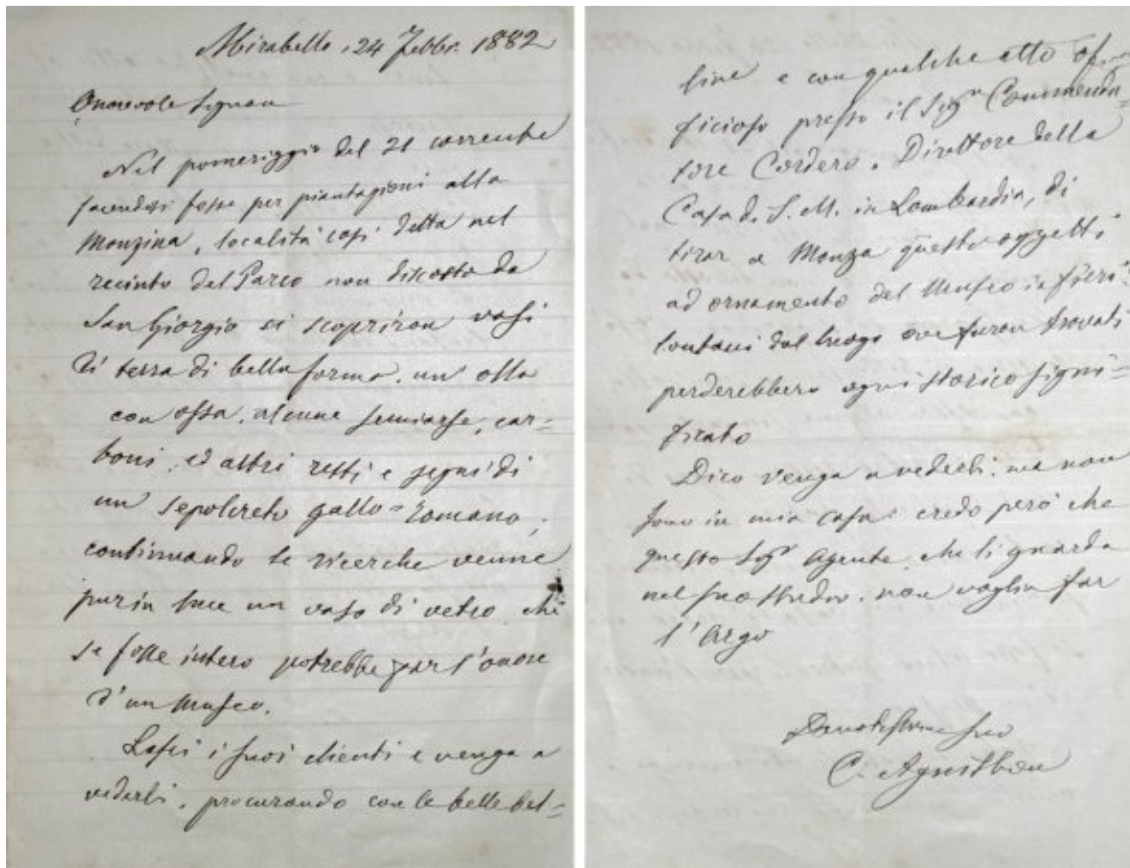 Mirabello, 24 Febbr. 1882
Onorevole Signore
Nel pomeriggio del 21 corrente
facendosi fosse per piantagioni alla
Monzina, località così detta nel
recinto del Parco non discosto da
San Giorgio si scopriron vasi
di terra di bella forma. un' olla
con ossa, alcune semiarse, car=
boni, ed altri resti e segni di
un sepolcreto gallo=romano,
continuando le ricerche venne
pur in luce un vaso di vetro che
se fosse intero potrebbe far l'onore
d'un Museo.
Lasci i suoi clienti e venga a
vederli, procurando con le belle bel=
line e con qualche atto of=
ficioso presso il Sigr Commenda=
tore Cordero. Direttore della
Casa di S. M. in Lombardia, di
tirar a Monza questi oggetti
ad ornamento del Museo in fieri:
lontani dal luogo ove furon trovati
perderebbero ogni storico signi=
ficato
Dico venga a vederli, ma non
sono in mia casa: credo però che
questo Sigr Agente, che li guarda
nel suo studio, non voglia far
l'Argo
Devotissimo suo
C.